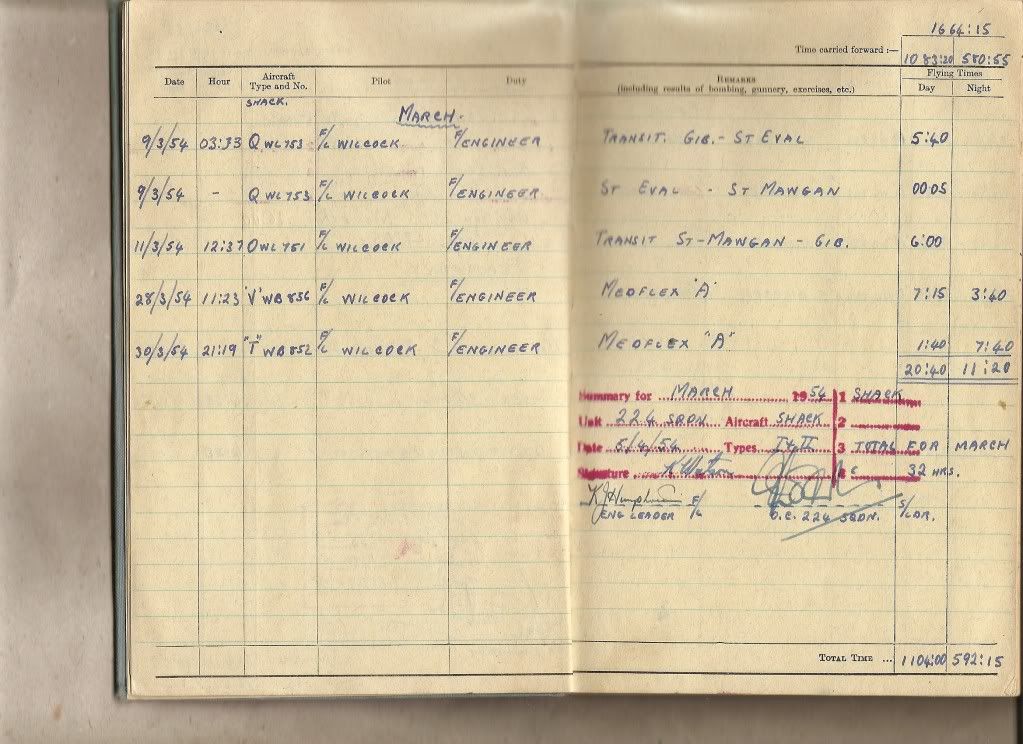 1664:15
Time carried forward :— 1083:20 580:55
Date Hour Aircraft Type and No. Pilot Duty Remarks (including results of bombing, gunnery, exercises, etc.) Flying Times Day Night
SHACK.
MARCH.
9/3/54 03:33 Q WL753 F/L WILCOCK F/ENGINEER TRANSIT. GIB.- ST EVAL 5:40
9/3/54 - Q WL753 F/L WILCOCK F/ENGINEER ST EVAL - ST MAWGAN 00:05
11/3/54 12:37 O WL751 F/L WILCOCK F/ENGINEER TRANSIT ST-MAWGAN - GIB. 6:00
28/3/54 11:23 'V' WB836 F/L WILCOCK F/ENGINEER MEDFLEX 'A' 7:15 3:40
30/3/54 21:19 "T" WB852 F/L WILCOCK F/ENGINEER MEDFLEX "A" 1:40 7:40
20:40 11:20
Summary for MARCH 1954 1 SHACK
Unit 224 SQDN Aircraft SHACK 2
Date 5/4/54 Types Ty II 3 TOTAL FOR MARCH
Signature K Watson 32 HRS.
K J Humphries F/L S/LDR.
ENG LEADER O.C. 224 SQDN.
Total Time ... 1104:00 592:15